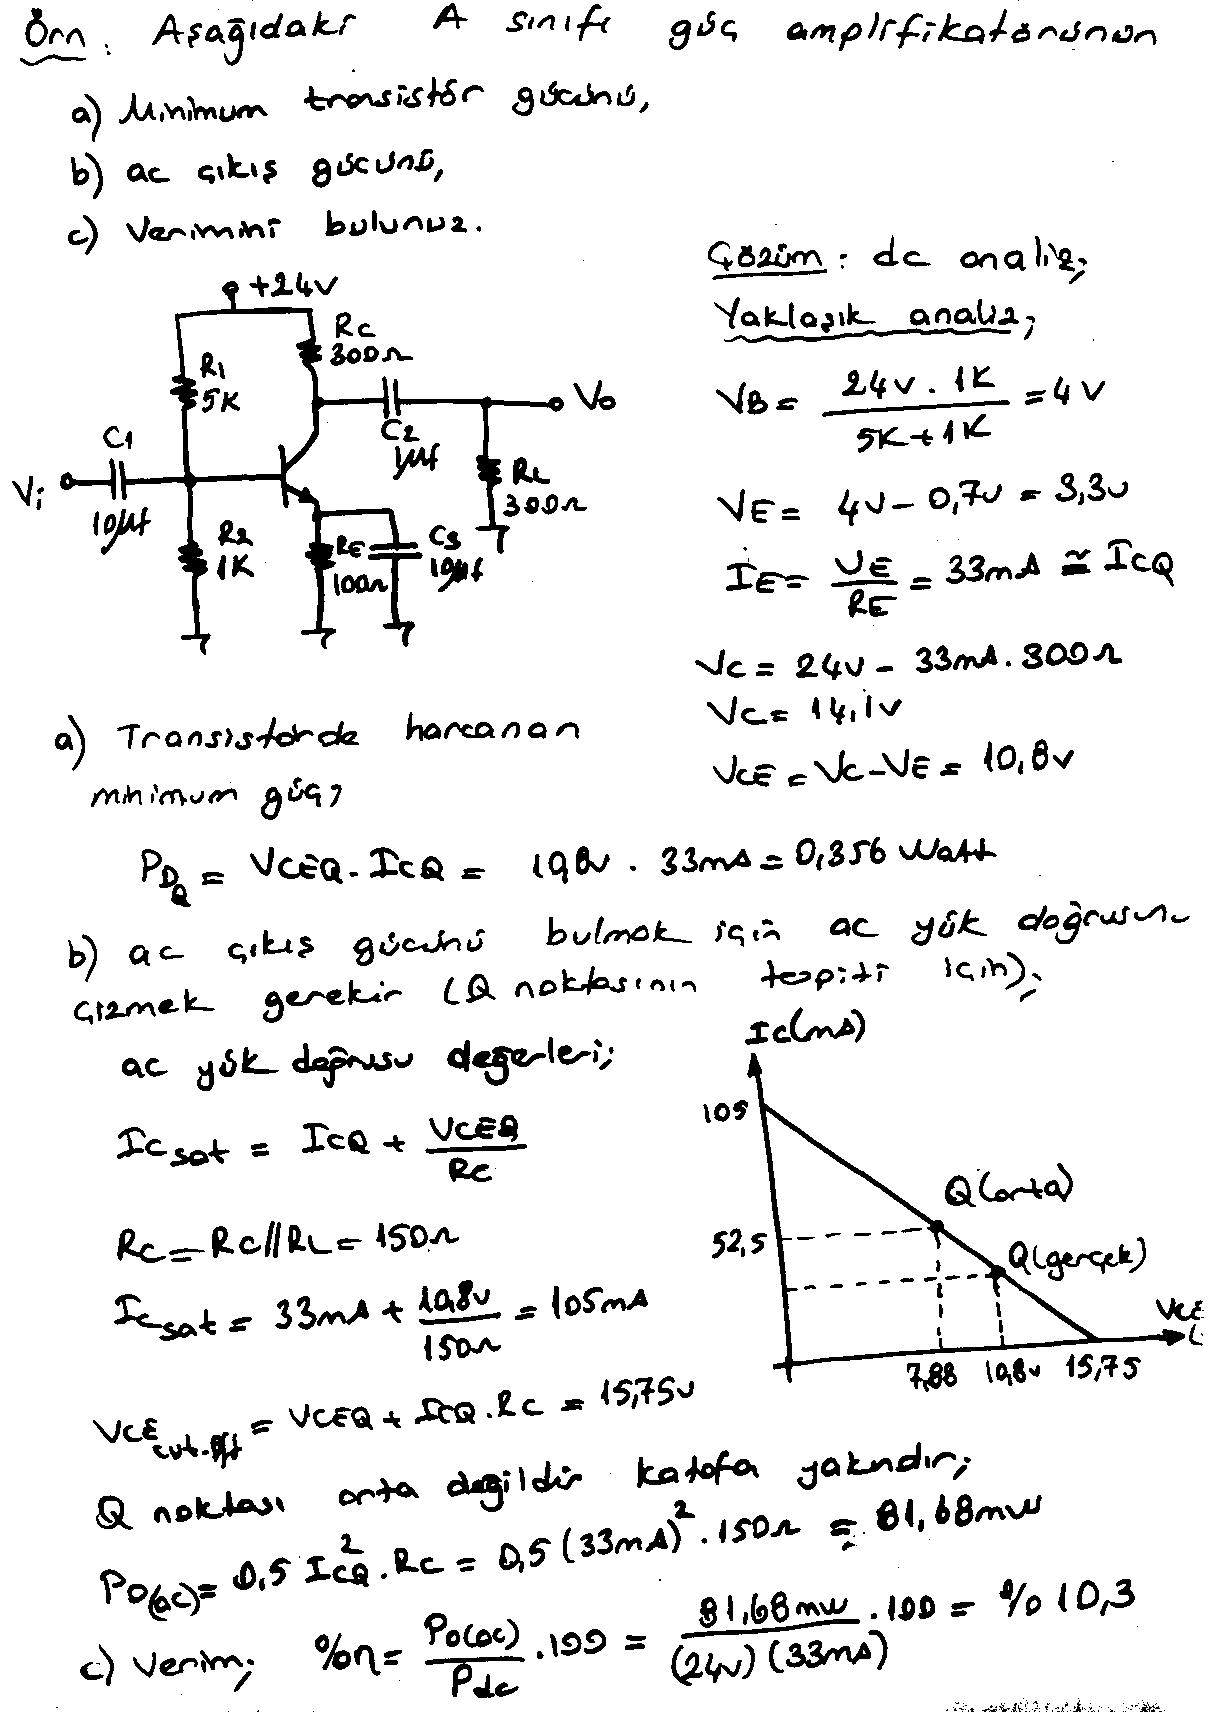 Örn. Aşağıdaki A sınıfı güç amplifikatörünün
a) Minimum transistör gücünü,
b) ac çıkış gücünü,
c) Verimini bulunuz.
+24v
RC
300Ω
R1
5K
C2
1µf
Vo
C1
10µf
Vi
RL
300Ω
R2
1K
RE
100Ω
C3
10µf
Çözüm: dc analiz;
Yaklaşık analiz;
VB = 24v . 1K / 5K + 1K = 4V
VE = 4v - 0,7v = 3,3v
IE = VE / RE = 33mA ≅ ICQ
VC = 24v - 33mA . 300Ω
VC = 14,1v
VCE = VC - VE = 10,8v
a) Transistörde harcanan
minimum güç;
PDQ = VCEQ . ICQ = 10,8v . 33mA = 0,356 Watt
b) ac çıkış gücünü bulmak için ac yük doğrusunu
çizmek gerekir (Q noktasının tespiti için);
ac yük doğrusu değerleri;
ICsat = ICQ + VCEQ / RC
RC = RC//RL = 150Ω
ICsat = 33mA + 10,8v / 150Ω = 105mA
VCEcut-off = VCEQ + ICQ . RC = 15,75v
IC(mA)
105
Q(orta)
52,5
Q(gerçek)
VCE
7,88 10,8v 15,75
Q noktası orta değildir katofa yakındır;
PO(ac) = 0,5 ICQ² . RC = 0,5 (33mA)² . 150Ω = 81,68mw
c) Verim; %η = PO(ac) / Pdc . 100 = 81,68mw / (24v) (33mA) . 100 = %10,3